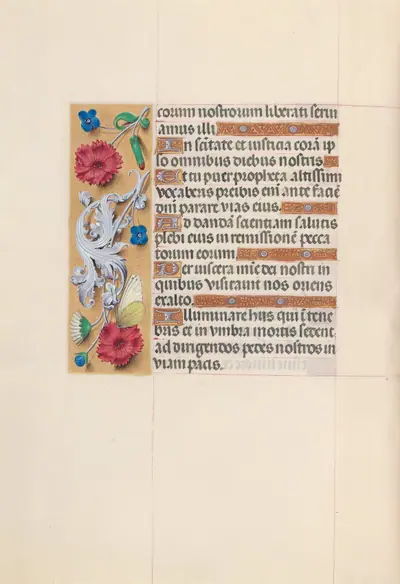 corum nostrorum liberati serui
amus illi.
In scitate et iusticia corā ip
so omnibus diebus nostris.
Et tu puer propheta altissimi
vocaberis preibis eni ante faciē
dn̄i parare vias eius.
Ad dandā scientiam salutis
plebi eius in remissionē pecca
torum eorum.
Per viscera mīe dei nostri in
quibus visitauit nos oriens
ex alto.
Illuminare hiis qui ī tene
bris et in vmbra mortis sedent.
ad dirigendos pedes nostros in
viam pacis.